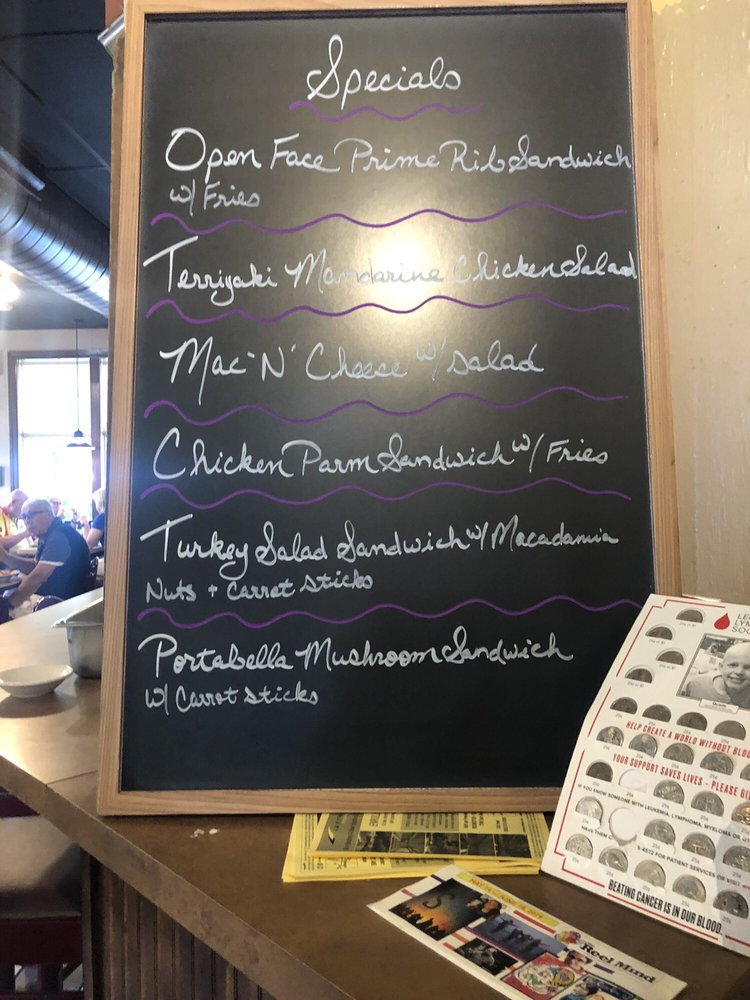 Specials
Open Face Prime Rib Sandwich
w/ Fries
Terriyaki Mandarine Chicken Salad
Mac-N' Cheese w/ salad
Chicken Parm Sandwich w/ Fries
Turkey Salad Sandwich w/ Macadamia
Nuts + Carrot sticks
Portabella Mushroom Sandwich
w/ Carrot sticks
HELP CREATE A WORLD WITHOUT BLOO
YOUR SUPPORT SAVES LIVES - PLEASE GI
IF YOU KNOW SOMEONE WITH LEUKEMIA, LYMPHOMA, MYELOMA OR
HAVE THEM
FOR PATIENT SERVICES OR VISIT
BEATING CANCER IS IN OUR BLOOD.
Reel Mind